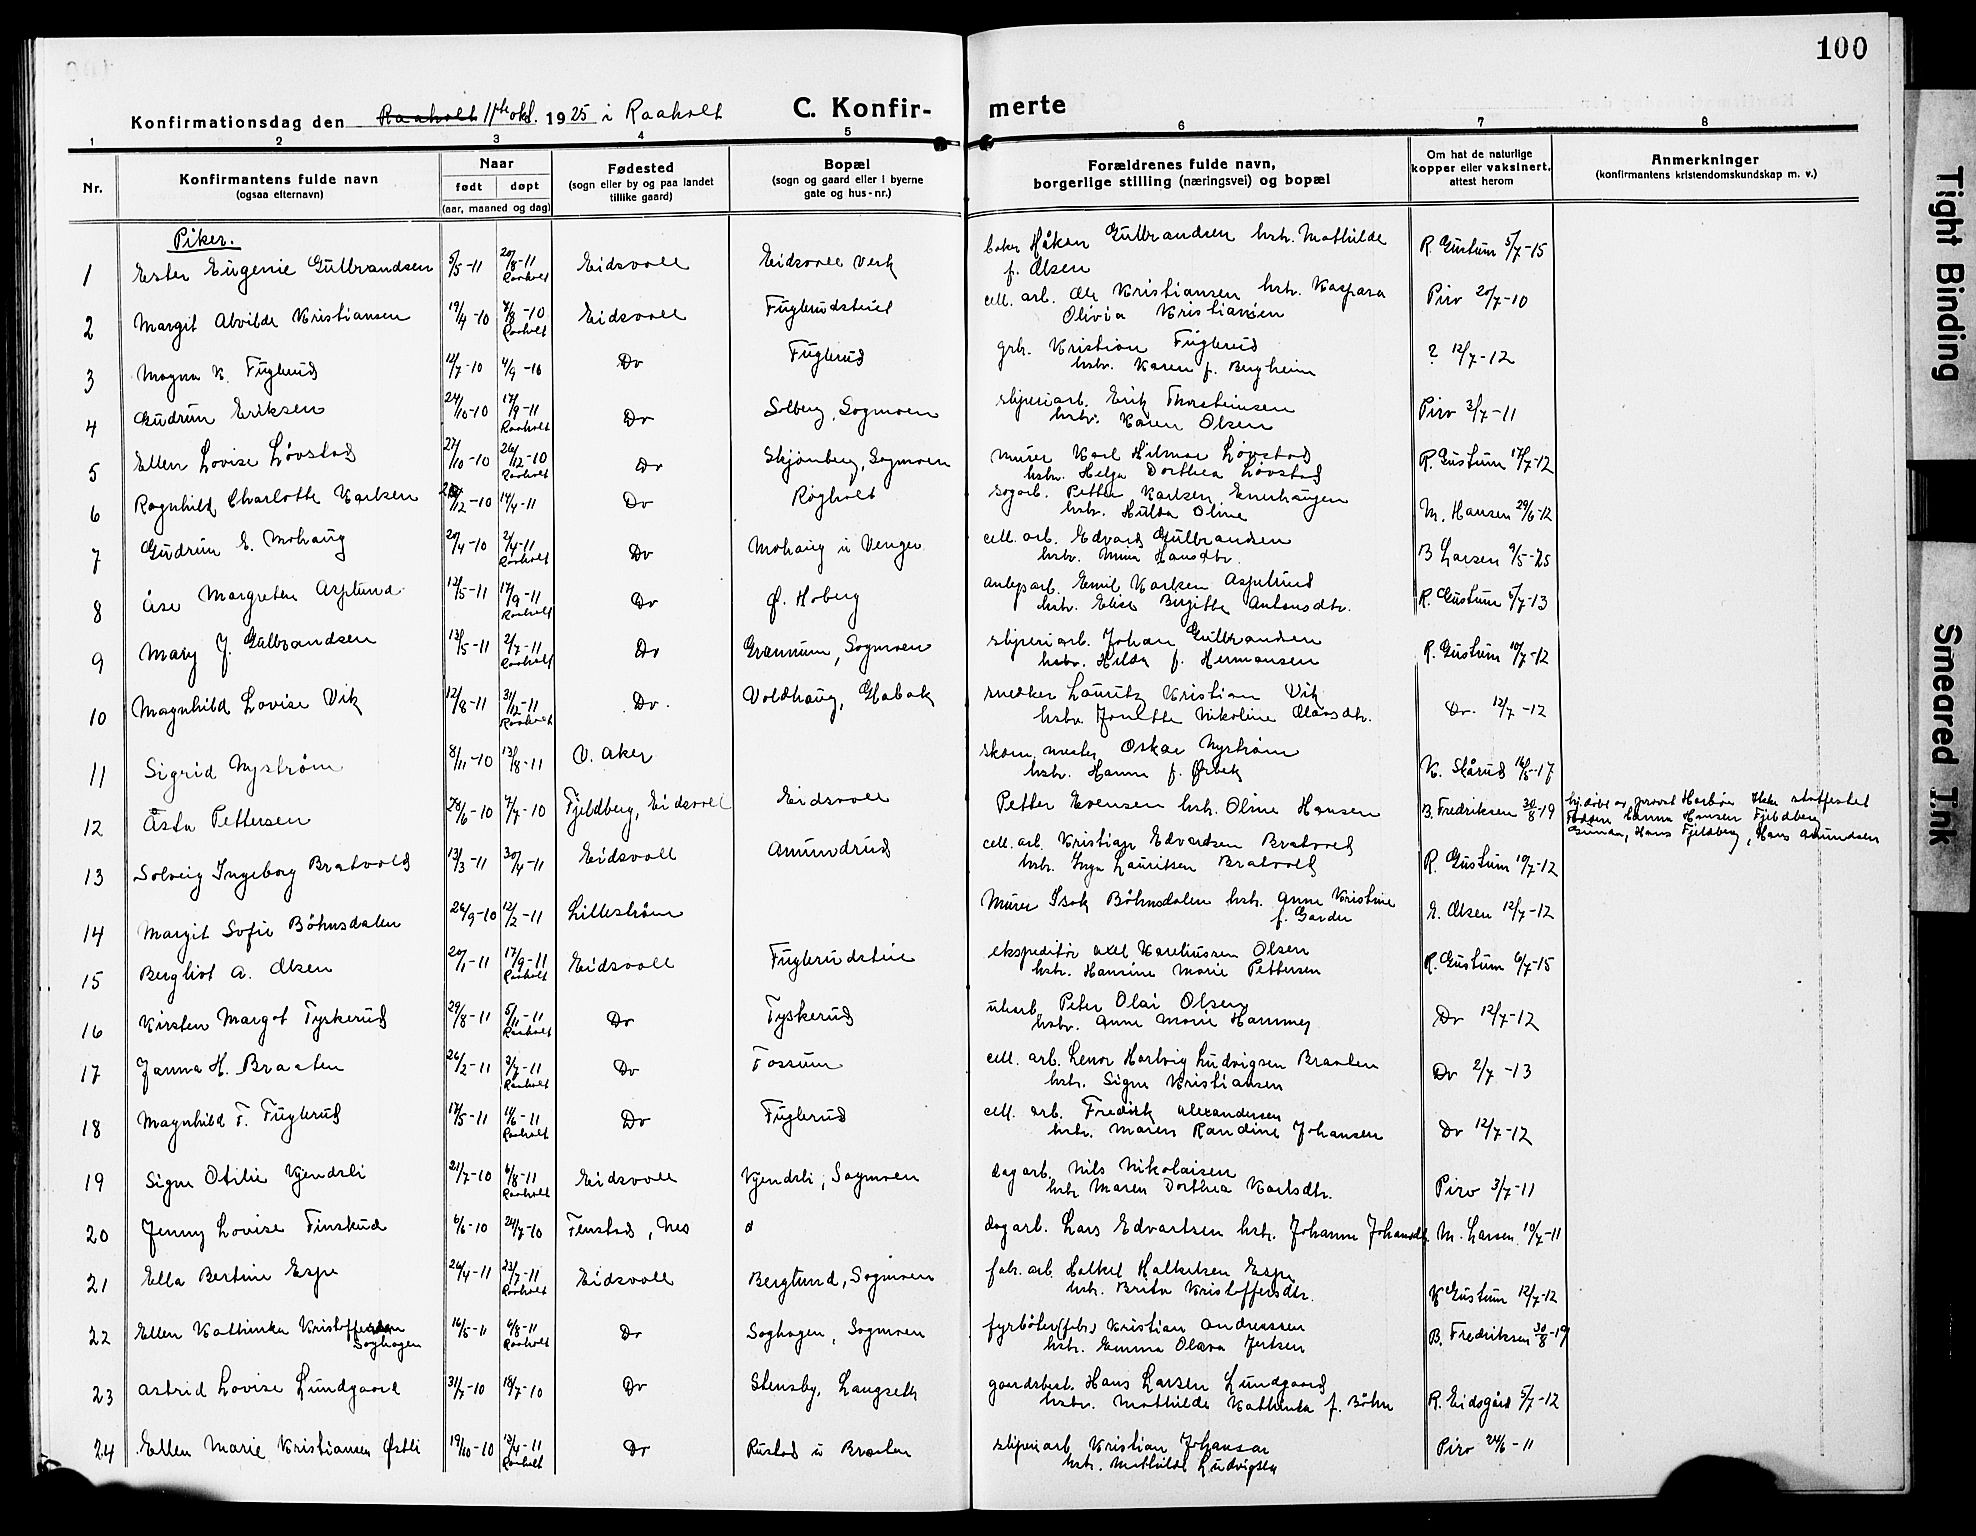 100
Konfirmationsdag den Raaholt 11te okt. 1925 i Raaholt C. Konfir- merte
1 2 3 4 5 6 7 8
Nr. Konfirmantens fulde navn (ogsaa efternavn) Naar født døpt (aar, maaned og dag) Fødested (sogn eller by og paa landet tillike gaard) Bopæl (sogn og gaard eller i byerne gate og hus-nr.) Forældrenes fulde navn, borgerlige stilling (næringsvei) og bopæl Om hat de naturlige kopper eller vaksinert, attest herom Anmerkninger (konfirmantens kristendomskundskap m. v.)
Piker.
1 Ester Eugenie Gulbrandsen 5/5-11 20/8-11 Raaholt Eidsvoll Eidsvoll Verk Håken Gulbrandsen hstr. Mathilde f. Olsen R. Gustum 5/7-15
2 Margit Alvilde Kristiansen 19/4-10 7/8-10 Raaholt Eidsvoll Fuglerudsteiet cell. arb. Ole Kristiansen hstr. Kaspara Olivia Kristiansen Piro 20/7-10
3 Magna K. Fuglerud 12/7-10 4/9-10 Do Fuglerud grb. Kristian Fuglerud hstr. Karen f. Bergheim ? 12/7-12
4 Gudrun Eriksen 24/10-10 17/9-11 Raaholt Do Solberg, Sogmoen sliperiarb. Erik Thorsteinsen hstr. Karen Olsen Piro 3/7-11
5 Ellen Lovise Løvstad 27/10-10 26/12-10 Raaholt Do Skjønberg, Sogmoen murer Karl Hilmar Løvstad hstr. Helga Dorthea Løvstad R. Gustum 17/7-12
6 Ragnhild Charlotte Karlsen /12-10 14/4-11 Do Røgholt sagarb. Petter Karlsen Enerhaugen hstr. Hulda Oline M. Hansen 29/6-12
7 Gudrun E. Mohaug 20/4-10 2/4-11 Raaholt Do Mohaug u Venger cell. arb. Edvard Gulbrandsen hstr. Mina Hansdtr. B Larsen 9/5-25
8 Åse Margrethe Asplund 12/5-11 17/9-11 Raaholt Do Ø. Hoberg anlegsarb. Emil Karlsen Asplund hstr. Elise Birgitte Antonsdtr. R. Gustum 5/7-13
9 Mary J. Gulbrandsen 13/5-11 2/7-11 Raaholt Do Grønnum, Sogmoen sliperiarb. Johan Gulbrandsen hstr. Hilda f. Hermansen R. Gustum 10/7-12
10 Magnhild Lovise Vik 12/8-11 31/12-11 Raaholt Do. Voldhaug, Habak snedker Lauritz Kristian Vik hstr. Jonette Nikoline Olausdtr. Do. 12/7-12
11 Sigrid Nystrøm 8/11-10 13/8-11 V. Aker skom. mester Oskar Nystrøm hstr. Hanna f. Ørbek K. Skårud 16/5-17
12 Åsta Pettersen 28/6-10 4/7-10 Fjeldberg, Eidsvoll Eidsvoll Petter Evensen hstr. Oline Hansen B. Fredriksen 30/8-19 hj.døbt av provst Hartvig. Ikke stadfestet Faddere Hanna Hansen Fjeldberg Gunnar, Hans Fjeldberg, Hans Amundsen
13 Solveig Ingeborg Bratvold 13/3-11 30/4-11 Eidsvoll Amundrud cell. arb. Kristian Edvardsen Bratvold hstr. Inga Lauritsen Bratvold R. Gustum 10/7-12
14 Margit Sofie Bøhnsdalen 26/9-10 12/2-11 Lillestrøm Murer Isak Bøhnsdalen hstr. Anne Kristine f. Garder E. Olsen 12/7-12
15 Bergliot A. Olsen 20/1-11 17/9-11 Raaholt Eidsvoll Fuglerudsteie ekspeditør Axel Kareliussen Olsen hstr. Hansine Marie Pettersen R. Gustum 6/7-15
16 Kirsten Margot Tyskerud 29/8-11 5/11-11 Raaholt Do Tyskerud Peter Olai Olsen hstr. Anne Marie Hammer Do 12/7-12
17 Janna H. Braaten 26/2-11 2/7-11 Raaholt Do Fossum cell. arb. Lenor Hartvig Ludvigsen Braaten hstr. Signe Kristiansen Do 2/7-13
18 Magnhild F. Fuglerud 17/5-11 11/6-11 Raaholt Do Fuglerud cell. arb. Fredrik Alexandersen hstr. Maren Randine Johansen Do 12/7-12
19 Signe Otilie Kjendsli 21/7-10 6/8-11 Raaholt Eidsvoll Kjendsli, Sogmoen dagarb. Nils Nikolaisen hstr. Maren Dorthea Karlsdtr. Piro 3/7-11
20 Jenny Lovise Finskud 6/6-10 24/7-10 Fenstad, Nes dagarb. Lars Edvartsen hstr. Johanne Johansdtr M. Larsen 10/7-11
21 Ella Bertine Espe 26/4-11 23/7-11 Raaholt Eidsvoll Berglund, Sogmoen fabr. arb. Halkel Halkelsen Espe hstr. Brita Kristoffersdtr. K Gustum 12/7-12
22 Ellen Kathinka Kristoffersen Soghagen 16/5-11 6/8-11 Raaholt Do Soghagen, Sogmoen fyrbøter(fabr) Kristian Andreassen hstr. Emma Olava Jertsen B. Fredriksen 30/8-19
23 Astrid Lovise Lundgaard 31/7-10 18/7-10 Do Stensby, Langseth gaardsbest. Hans Larsen Lundgaard hstr. Mathilde Kathinka f. Bøhn R. Eidsgård 5/7-12
24 Ellen Marie Kristiansen Østli 19/10-10 13/4-11 Raaholt Do Rustad u Braaten sliperiarb Kristian Johansen hstr. Mathilde Ludvigsen Piro 24/6-11
Tight Binding
Smeared Ink